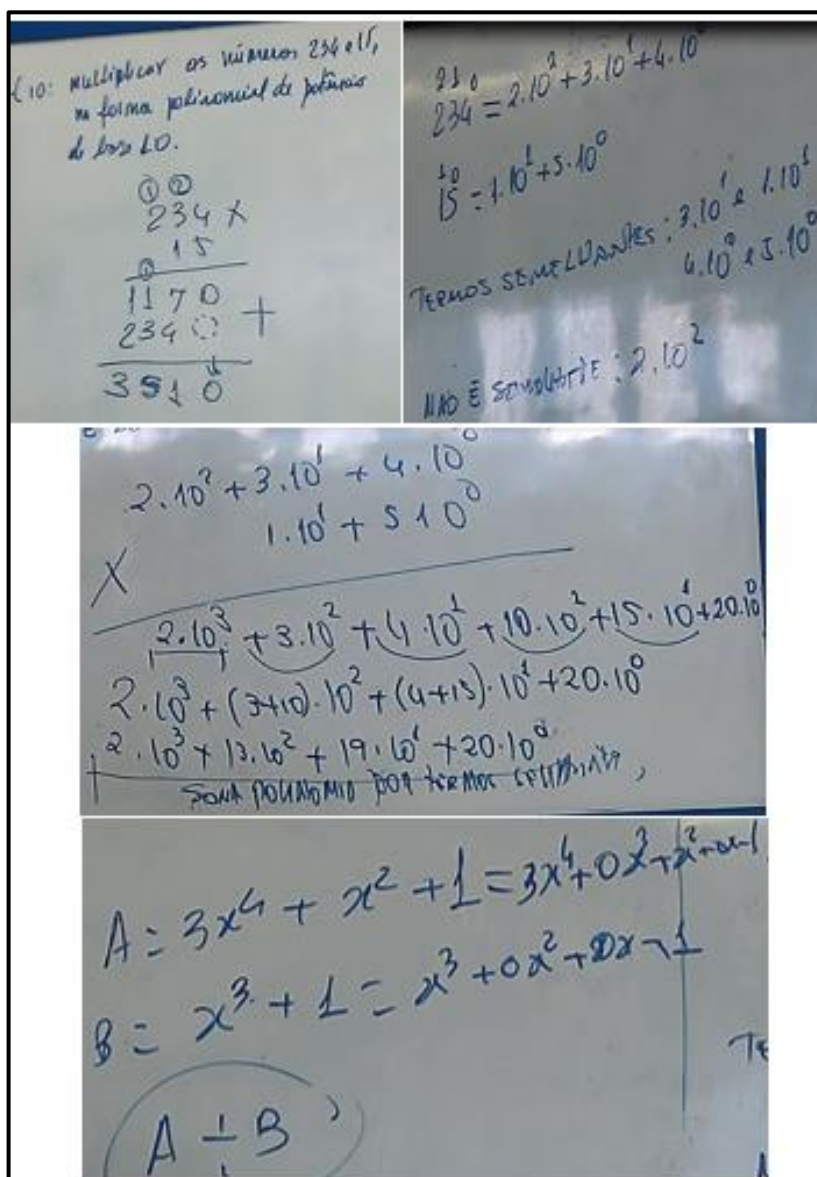 10: multiplicar os números 234 e 15,
na forma polinomial de potências
de base 10.
① ②
234 X
15
①
1170
234 +
3510
2 1 0
234 = 2.10² + 3.10¹ + 4.10⁰
1 0
15 = 1.10¹ + 5.10⁰
TERMOS SEMELHANTES: 3.10¹ e 1.10¹
4.10⁰ e 5.10⁰
NÃO É SEMELHANTE: 2.10²
2.10² + 3.10¹ + 4.10⁰
1.10¹ + 510⁰
X
2.10³ + 3.10² + 4.10¹ + 10.10² + 15.10¹ + 20.10⁰
2.10³ + (3+10).10² + (4+15).10¹ + 20.10⁰
2.10³ + 13.10² + 19.10¹ + 20.10⁰
SOMA POLINOMIO POR TERMOS
A = 3x⁴ + x² + 1 = 3x⁴ + 0x³ + x² + 0x - 1
B = x³ + 1 = x³ + 0x² + 0x - 1
A ÷ B